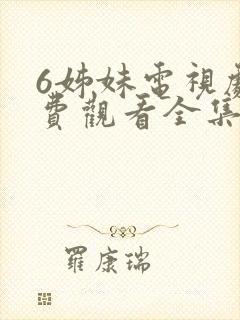 6姊妹電視劇
費觀看全集
羅康瑞